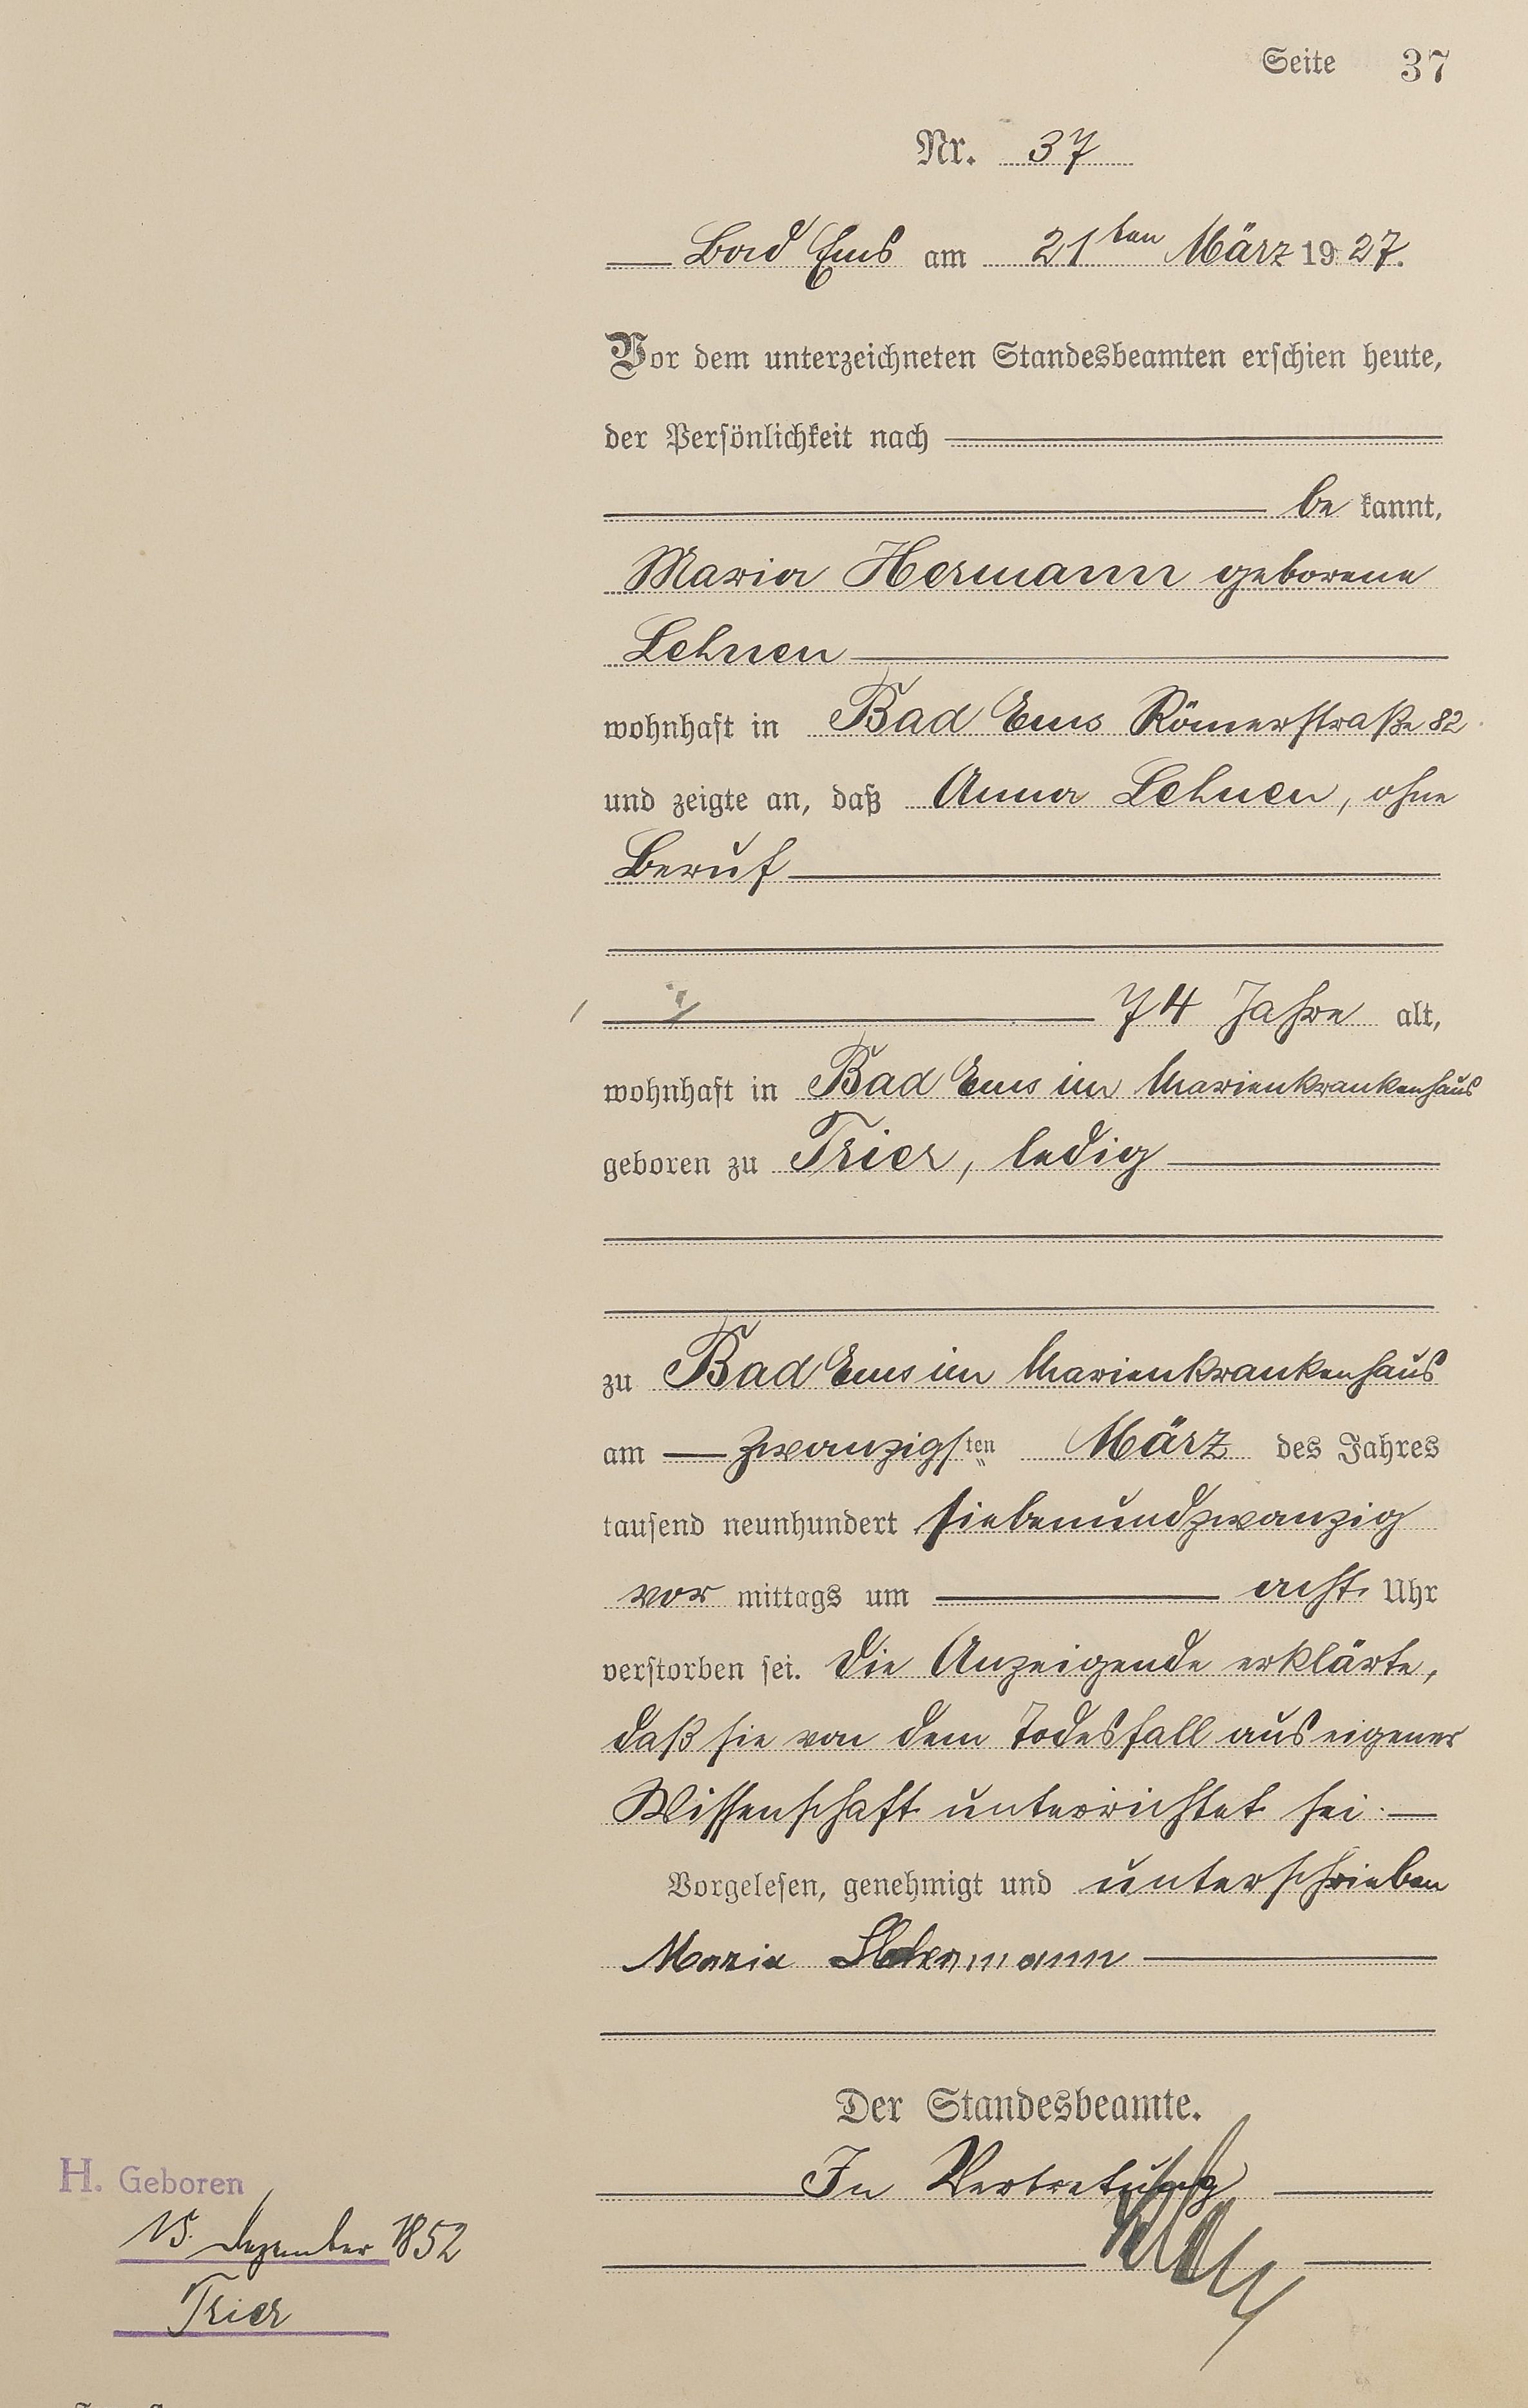 Seite 37
Nr. 37
Bad Ems am 21ten März 1927.
Vor dem unterzeichneten Standesbeamten erschien heute,
der Persönlichkeit nach
be kannt,
Maria Hermann geborene
Lehnen
wohnhaft in Bad Ems Römerstraße 82
und zeigte an, daß Anna Lehnen, ohne
Beruf
74 Jahre alt,
wohnhaft in Bad Ems im Marienkrankenhaus
geboren zu Trier, ledig
zu Bad Ems im Marienkrankenhaus
am zwanzigsten März des Jahres
tausend neunhundert siebenundzwanzig
vor mittags um acht Uhr
verstorben sei. Die Anzeigende erklärte,
daß sie von dem Todesfall aus eigener
Wissenschaft unterrichtet sei.
Vorgelesen, genehmigt und unterschrieben
Maria Hermann
Der Standesbeamte.
In Vertretung
H. Geboren
15. Dezember 1852
Trier